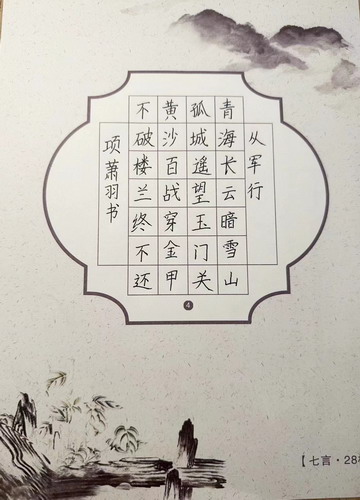 从军行
青海长云暗雪山
孤城遥望玉门关
黄沙百战穿金甲
不破楼兰终不还
项萧羽书
4
【七言·28